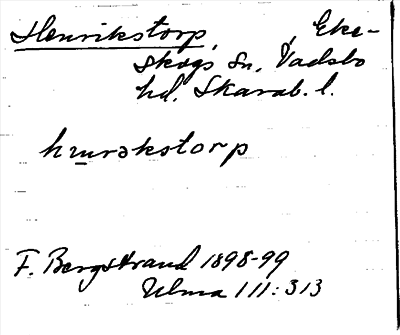 Henrikstorp, , Eke-
skogs sn, Vadsbo
hd, Skarab. l.
hɪnrəkstorp
F. Bergstrand 1898-99
Ulma 111:313